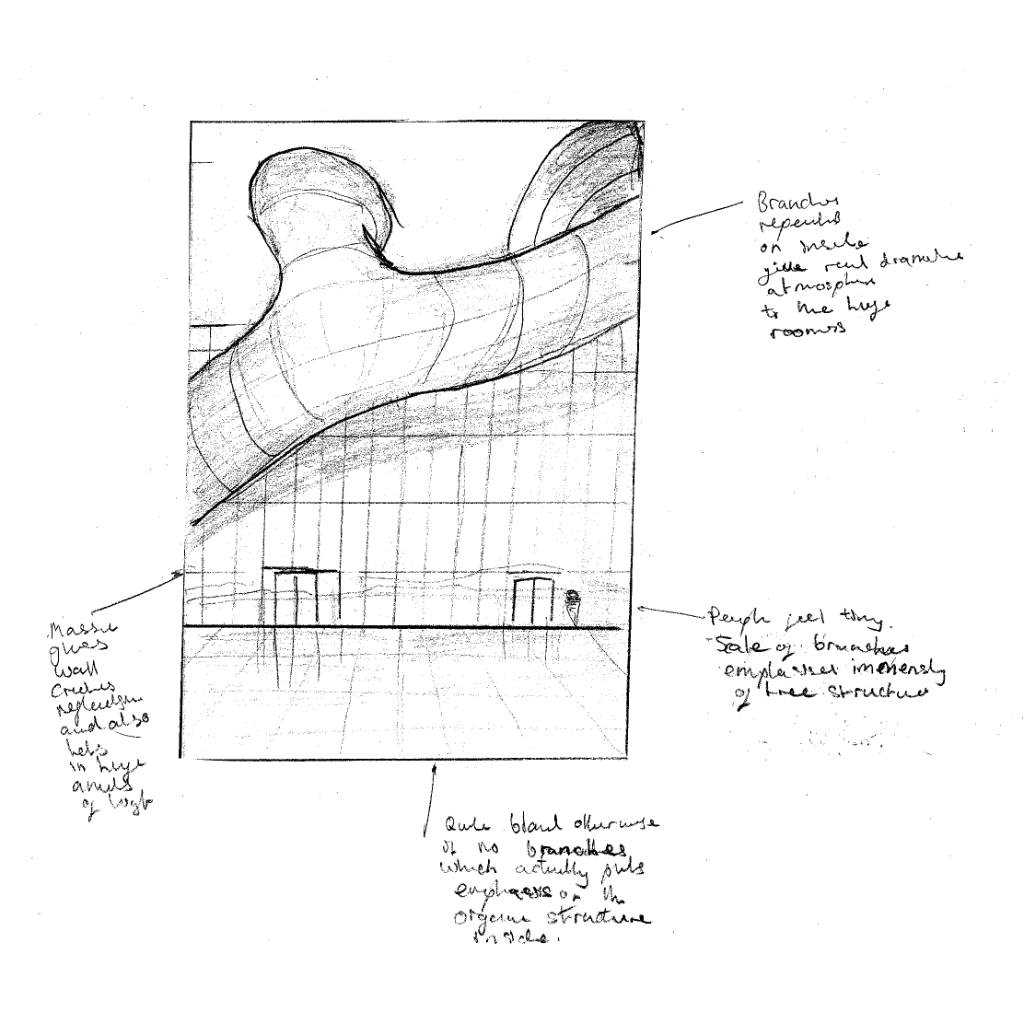 Branches
repeated
on inside
give real dramatic
atmosphere
to the huge
rooms
People feel tiny.
Scale of branches
emphasises immensity
of tree structure
Massive
glass
wall
creates
reflections
and also
lets
in huge
amounts
of light
Quite bland otherwise
if no branches
which actually puts
emphasis on the
organic structure
inside.